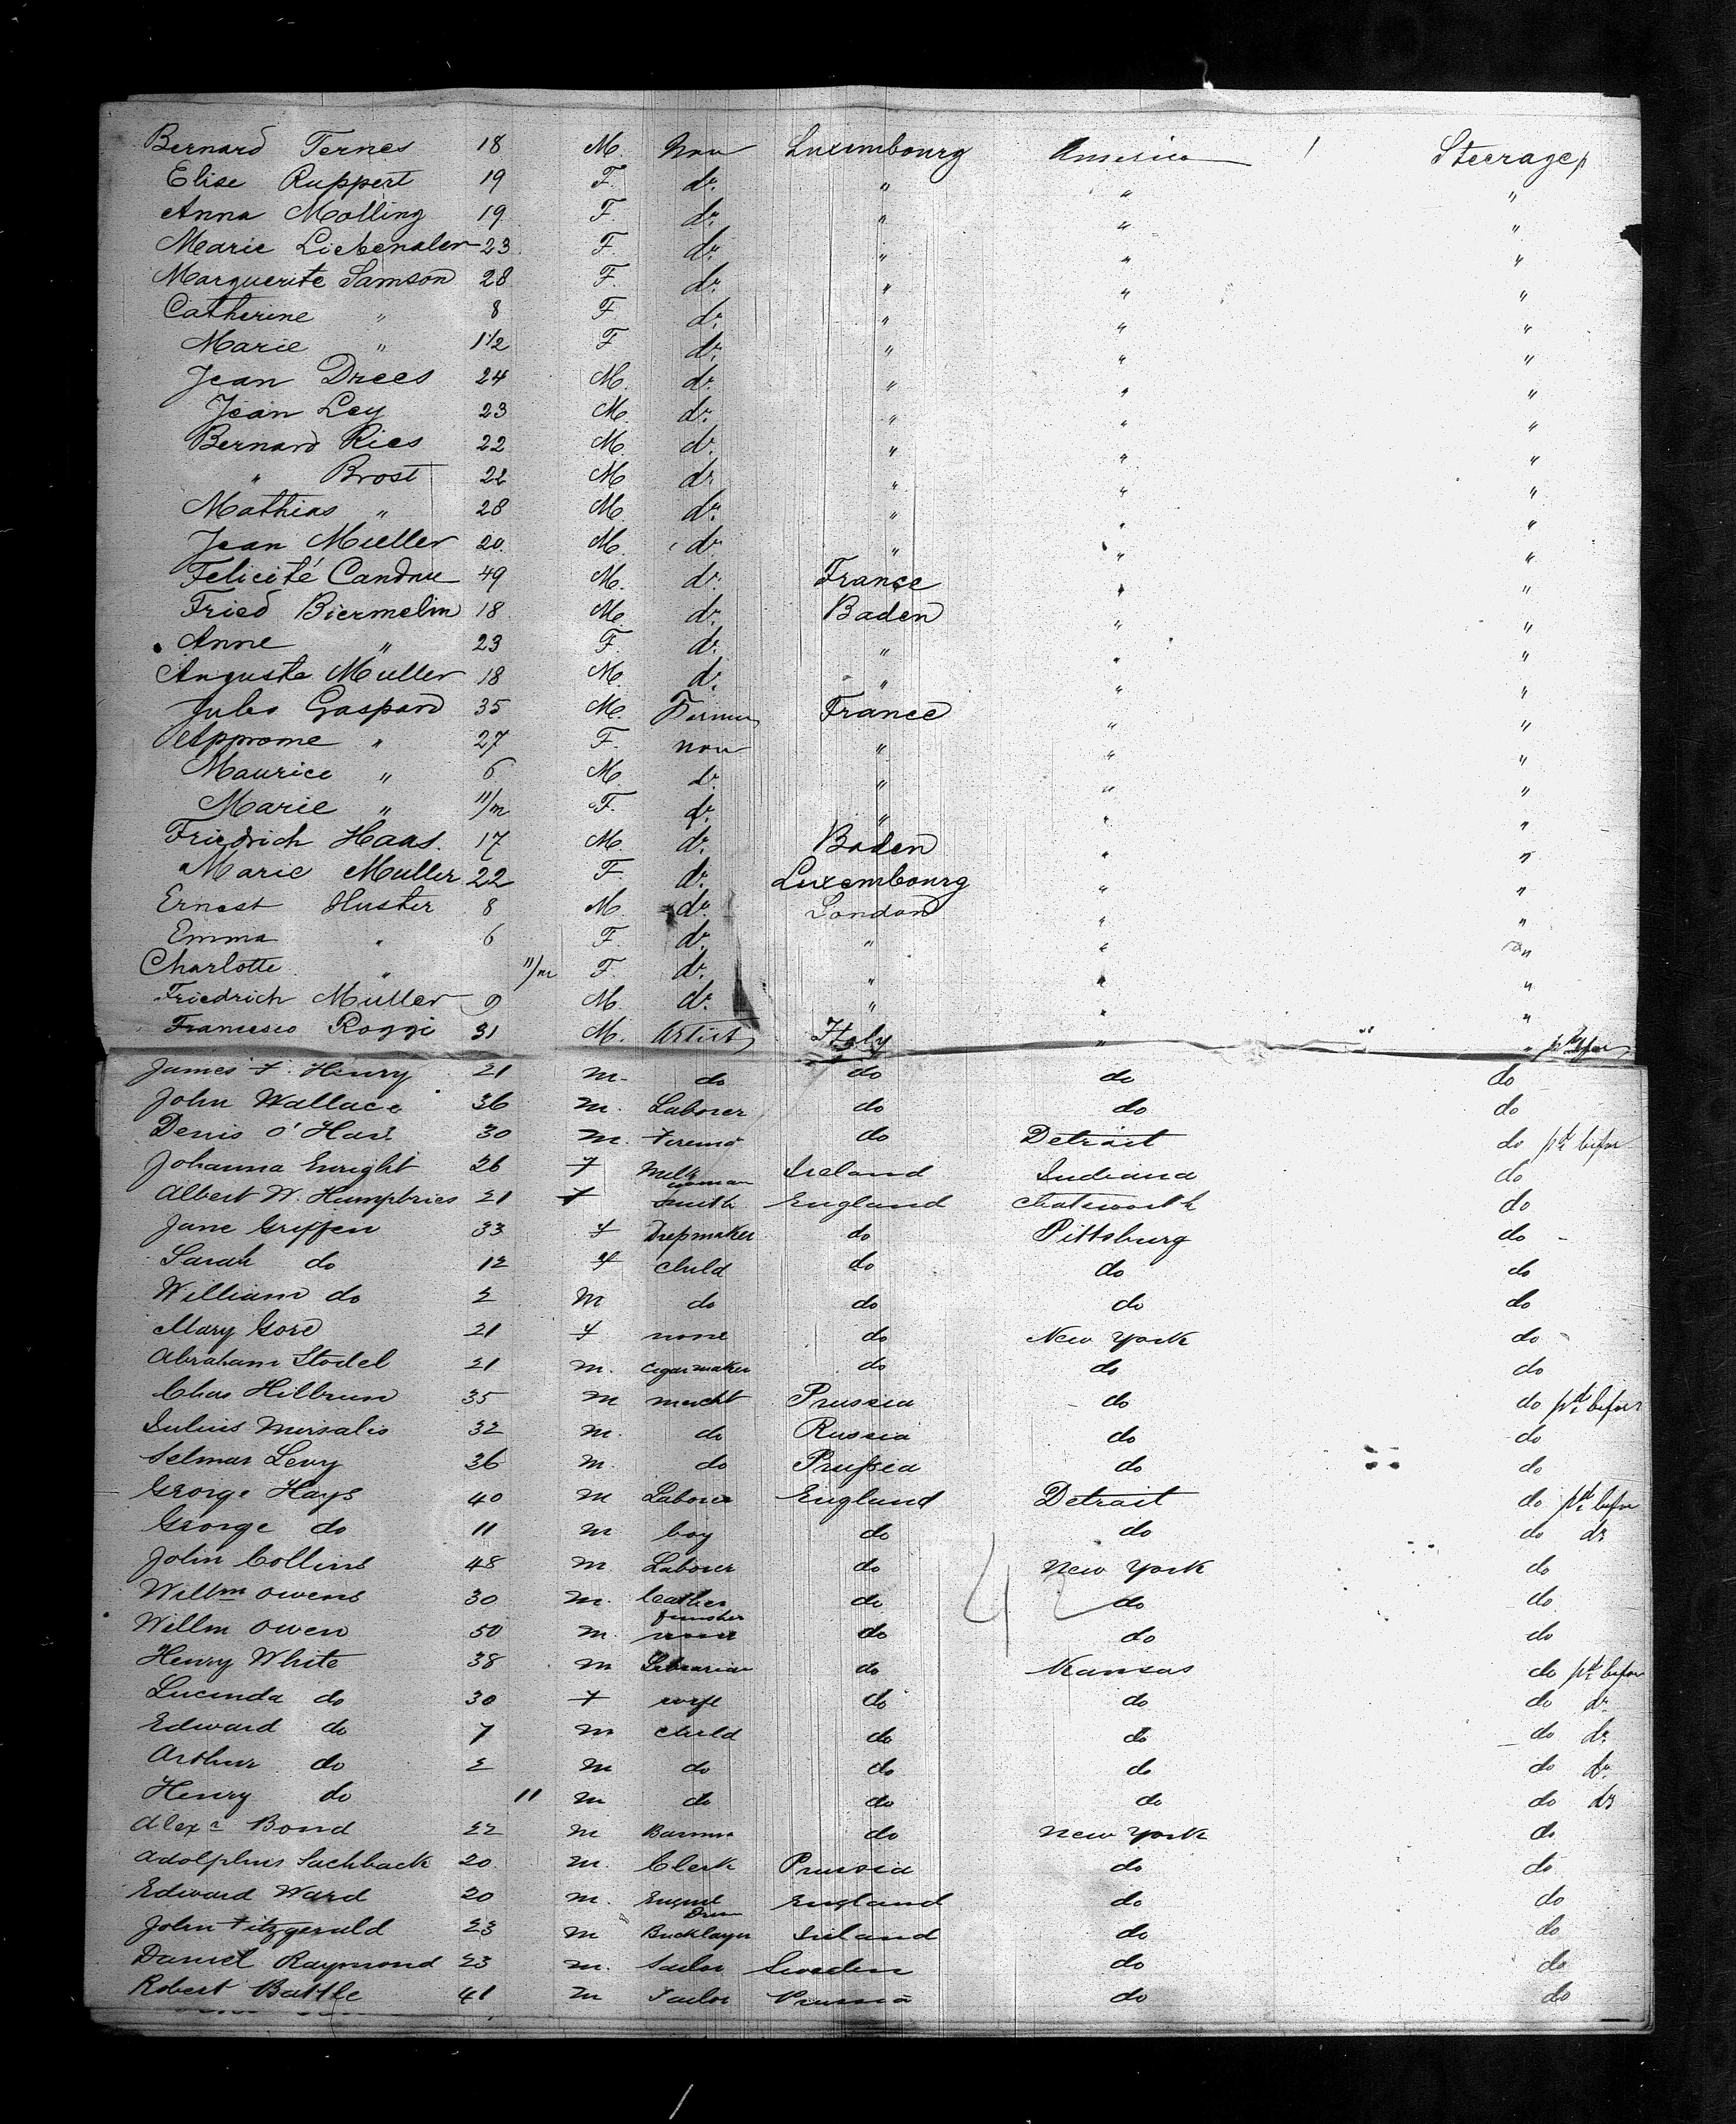 Bernard Ternes 18 M. Non Luxembourg America / Steerage
Elise Ruppert 19 F. do. " " "
Anna Molling 19 F. do. " " "
Marie Liebenaler 23 F. do. " " "
Marguerite Samson 28 F. do. " " "
Catherine " 8 F. do. " " "
Marie " 1 1/2 F do. " " "
Jean Drees 24 M. do. " " "
Jean Ley 23 M. do. " " "
Bernard Ries 22 M. do. " " "
" Brost 22 M do " " "
Mathias " 28 M. do. " " "
Jean Mueller 20. M. do. " " "
Felicité 49 M. do. France " "
Fried Biermelin 18 M. do. Baden " "
Anne " 23 F. do. " " "
Auguste Muller 18 M. do. " " "
Jules Gaspard 35 M. France " "
" 27 F. non " " "
Maurice " 6 M. do. " " "
Marie " 11/m F. do. " " "
Friedrich Haas. 17 M. do. Baden " "
Marie Muller 22 F do. Luxembourg " "
Ernest Huster 8 M. do. London " "
Emma " 6 F. do. " " "
Charlotte " 11/m F. do. " " "
Friedrich Muller 9 M. do. " " "
Francesco Roggi 31 M. Artist Italy " "
James F. Henry 21 m. do do do do
John Wallace 36 m. Laborer do do do
Denis O'Hare 30 m. Firemn do Detroit do pd before
Johanna Enright 26 f Milk woman Ireland Indiana do
Albert W. Humphries 21 f Smith England Chatsworth do
Jane Griffen 33 f Dressmaker do Pittsburg do -
Sarah do 12 f child do do do
William do 2 m do do do do
Mary Gore 21 f none do New York do
Abraham Stodel 21 m. Cigar maker do do do
Chas Hilbrun 35 m mercht Prussia do do pd before
Julius Mirsalis 32 m. do Russia do do
Selmar Levy 36 m. do Prussia do do
George Hays 40 m Laborer England Detroit do pd before
George do 11 m boy do do do do
John Collins 48 m. Laborer do New York do
Willm Owens 30 m. Leather finisher do do do
Willm Owen 50 m. none do do do
Henry White 38 m Librarian do Kansas do pd before
Lucinda do 30 f wife do do do do
Edward do 7 m child do do do do
Arthur do 2 m do do do do do
Henry do 11 m do do do do do
Alexr Bond 22 m Barman do New York do
Adolphus Sachback 20 m. Clerk Prussia do do
Edward Ward 20 m. England do do
John Fitzgerald 23 m Bricklayer Ireland do do
Daniel Raymond 23 m. Sailor Sweden do do
Robert Battle 41 m Tailor Prussia do do